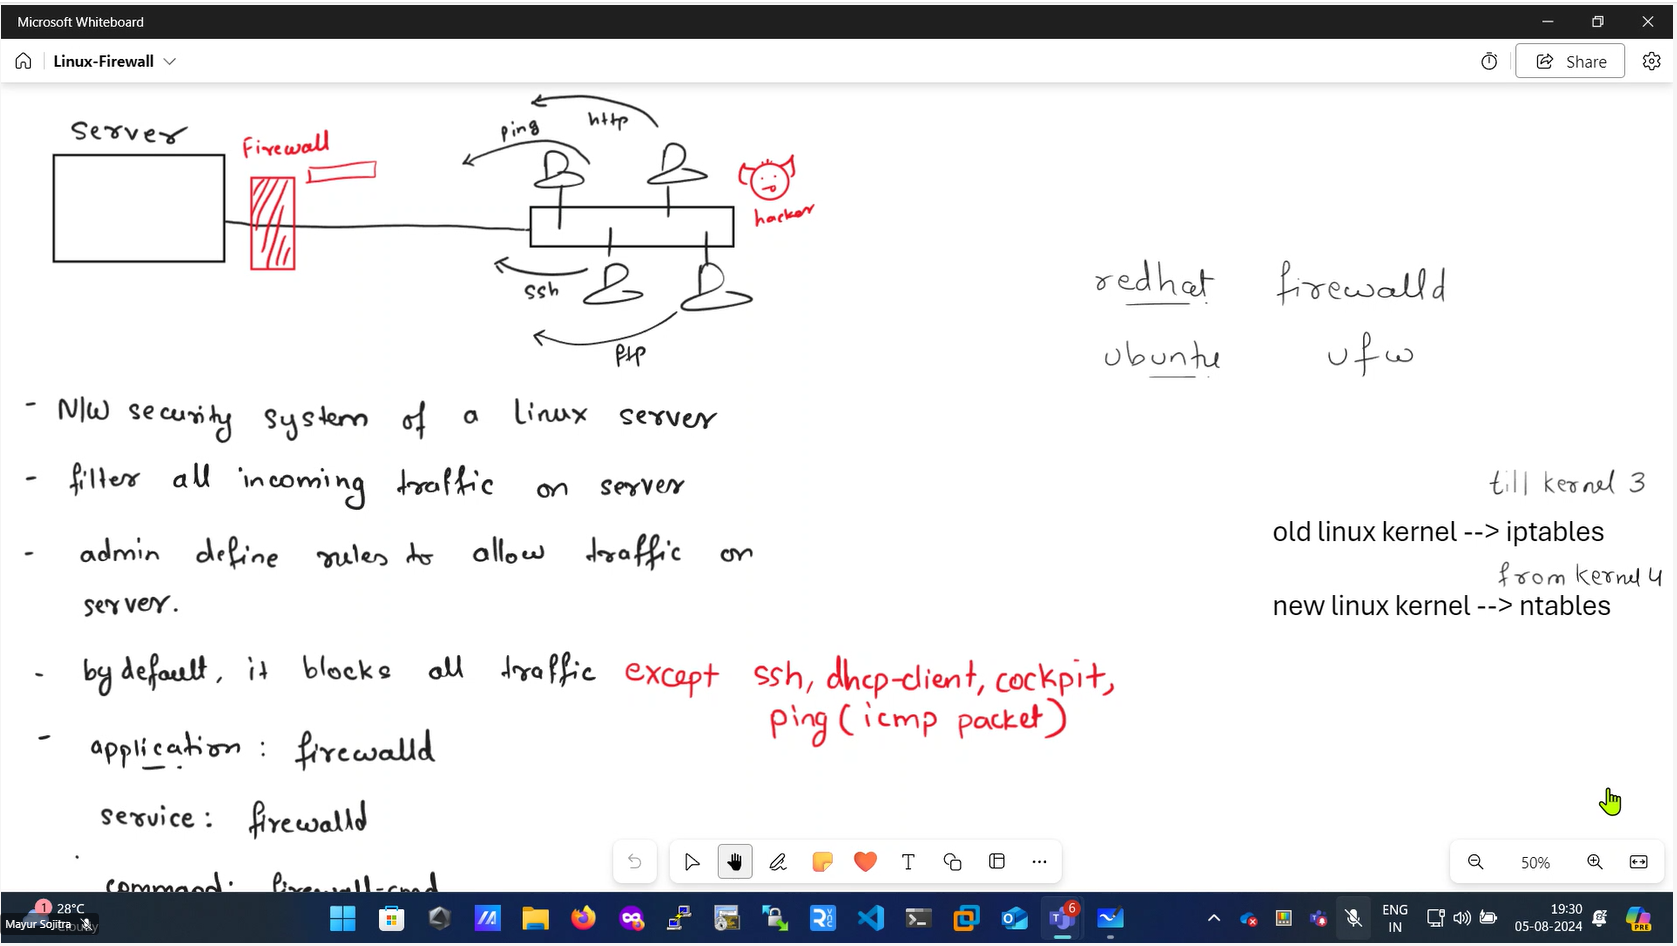 Microsoft Whiteboard
Linux-Firewall
Share
server
Firewall
ping
http
hacker
ssh
ftp
redhat firewalld
ubuntu ufw
- N/W security system of a linux server
- filter all incoming traffic on server
- admin define rules to allow traffic on
server.
- by default, it blocks all traffic except ssh, dhcp-client, cockpit,
ping (icmp packet)
- application : firewalld
service : firewalld
command: firewall-cmd
till kernel 3
old linux kernel --> iptables
from kernel 4
new linux kernel --> ntables
50%
1
28°C
Cloudy
Mayur Sojitra
6
ENG
IN
19:30
05-08-2024
PRE